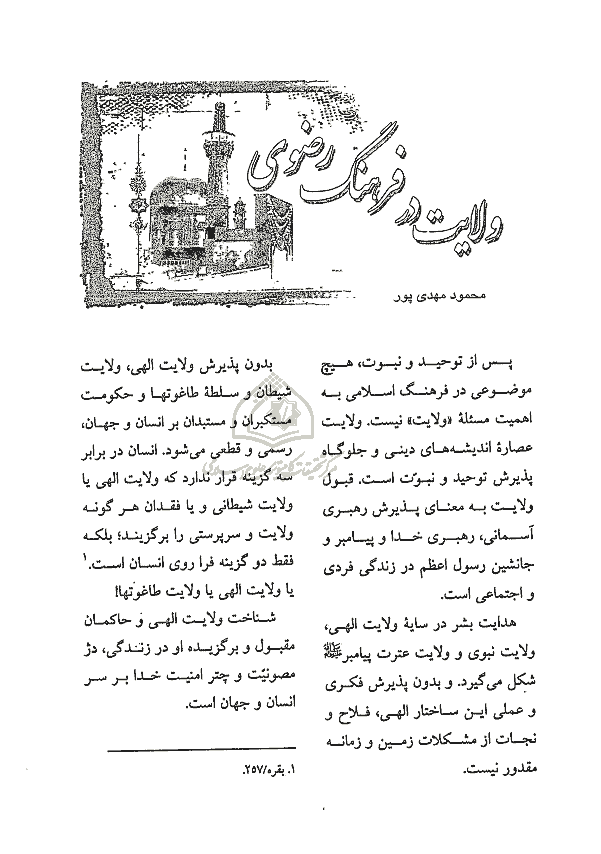 ولایت در فرهنگ رضوی
محمود مهدی پور
پس از توحید و نبوت، هیچ
موضوعی در فرهنگ اسلامی به
اهمیت مسئلهٔ «ولایت» نیست. ولایت
عصارهٔ اندیشه‌های دینی و جلوگاه
پذیرش توحید و نبوّت است. قبول
ولایت به معنای پذیرش رهبری
آسمانی، رهبری خدا و پیامبر و
جانشین رسول اعظم در زندگی فردی
و اجتماعی است.
هدایت بشر در سایهٔ ولایت الهی،
ولایت نبوی و ولایت عترت پیامبرﷺ
شکل می‌گیرد. و بدون پذیرش فکری
و عملی این ساختار الهی، فلاح و
نجات از مشکلات زمین و زمانه
مقدور نیست.
بدون پذیرش ولایت الهی، ولایت
شیطان و سلطهٔ طاغوتها و حکومت
مستکبران و مستبدان بر انسان و جهان،
رسمی و قطعی می‌شود. انسان در برابر
سه گزینه قرار ندارد که ولایت الهی یا
ولایت شیطانی و یا فقدان هر گونه
ولایت و سرپرستی را برگزیند؛ بلکه
فقط دو گزینه فرا روی انسان است.۱
یا ولایت الهی یا ولایت طاغوتها!
شناخت ولایت الهی و حاکمان
مقبول و برگزیده او در زندگی، دژ
مصونیّت و چتر امنیت خدا بر سر
انسان و جهان است.
۱. بقره/۲۵۷.